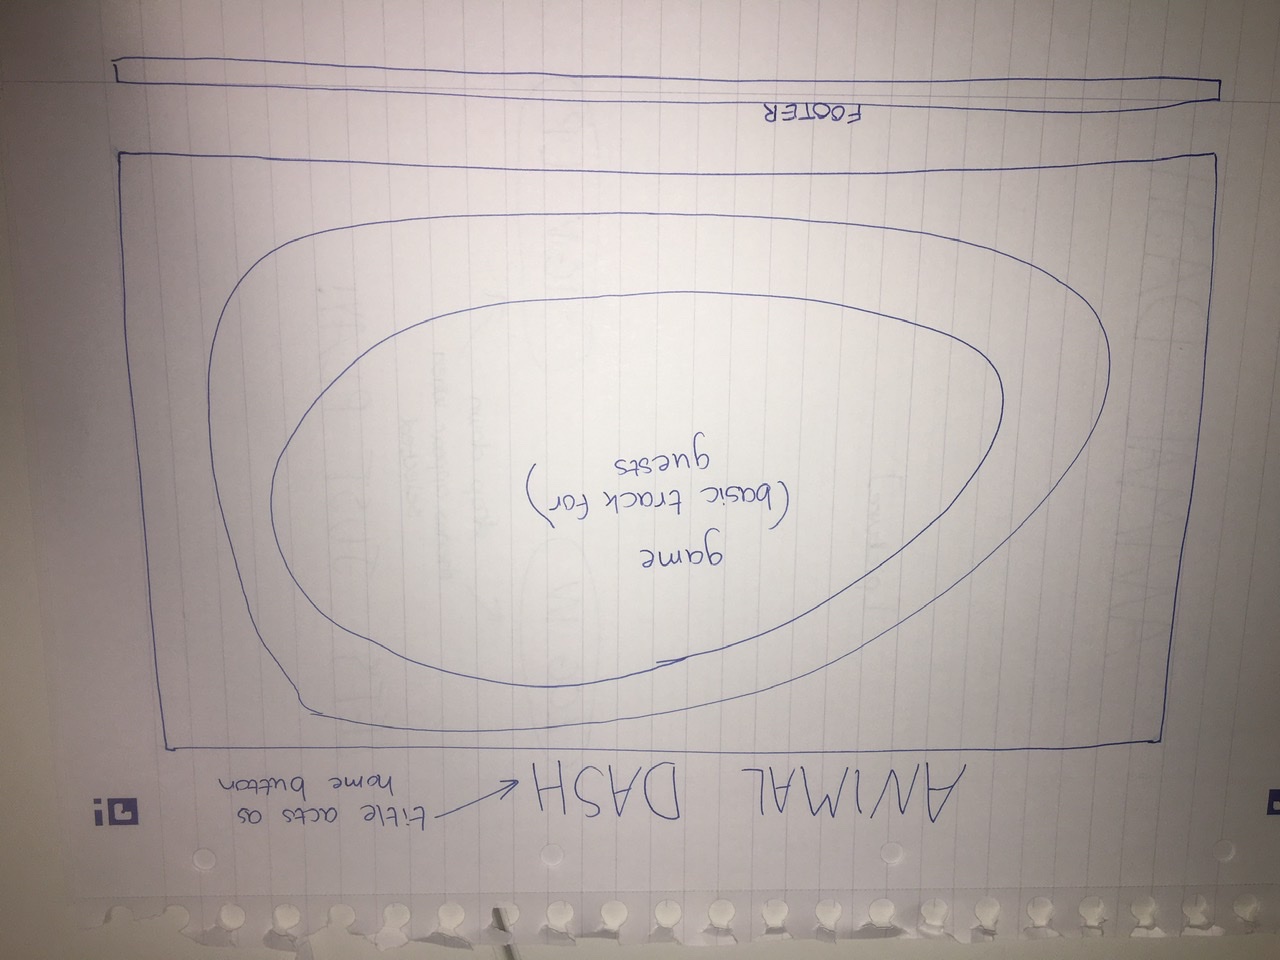 ANIMAL DASH
title acts as
home button
game
(basic track for)
guests
FOOTER